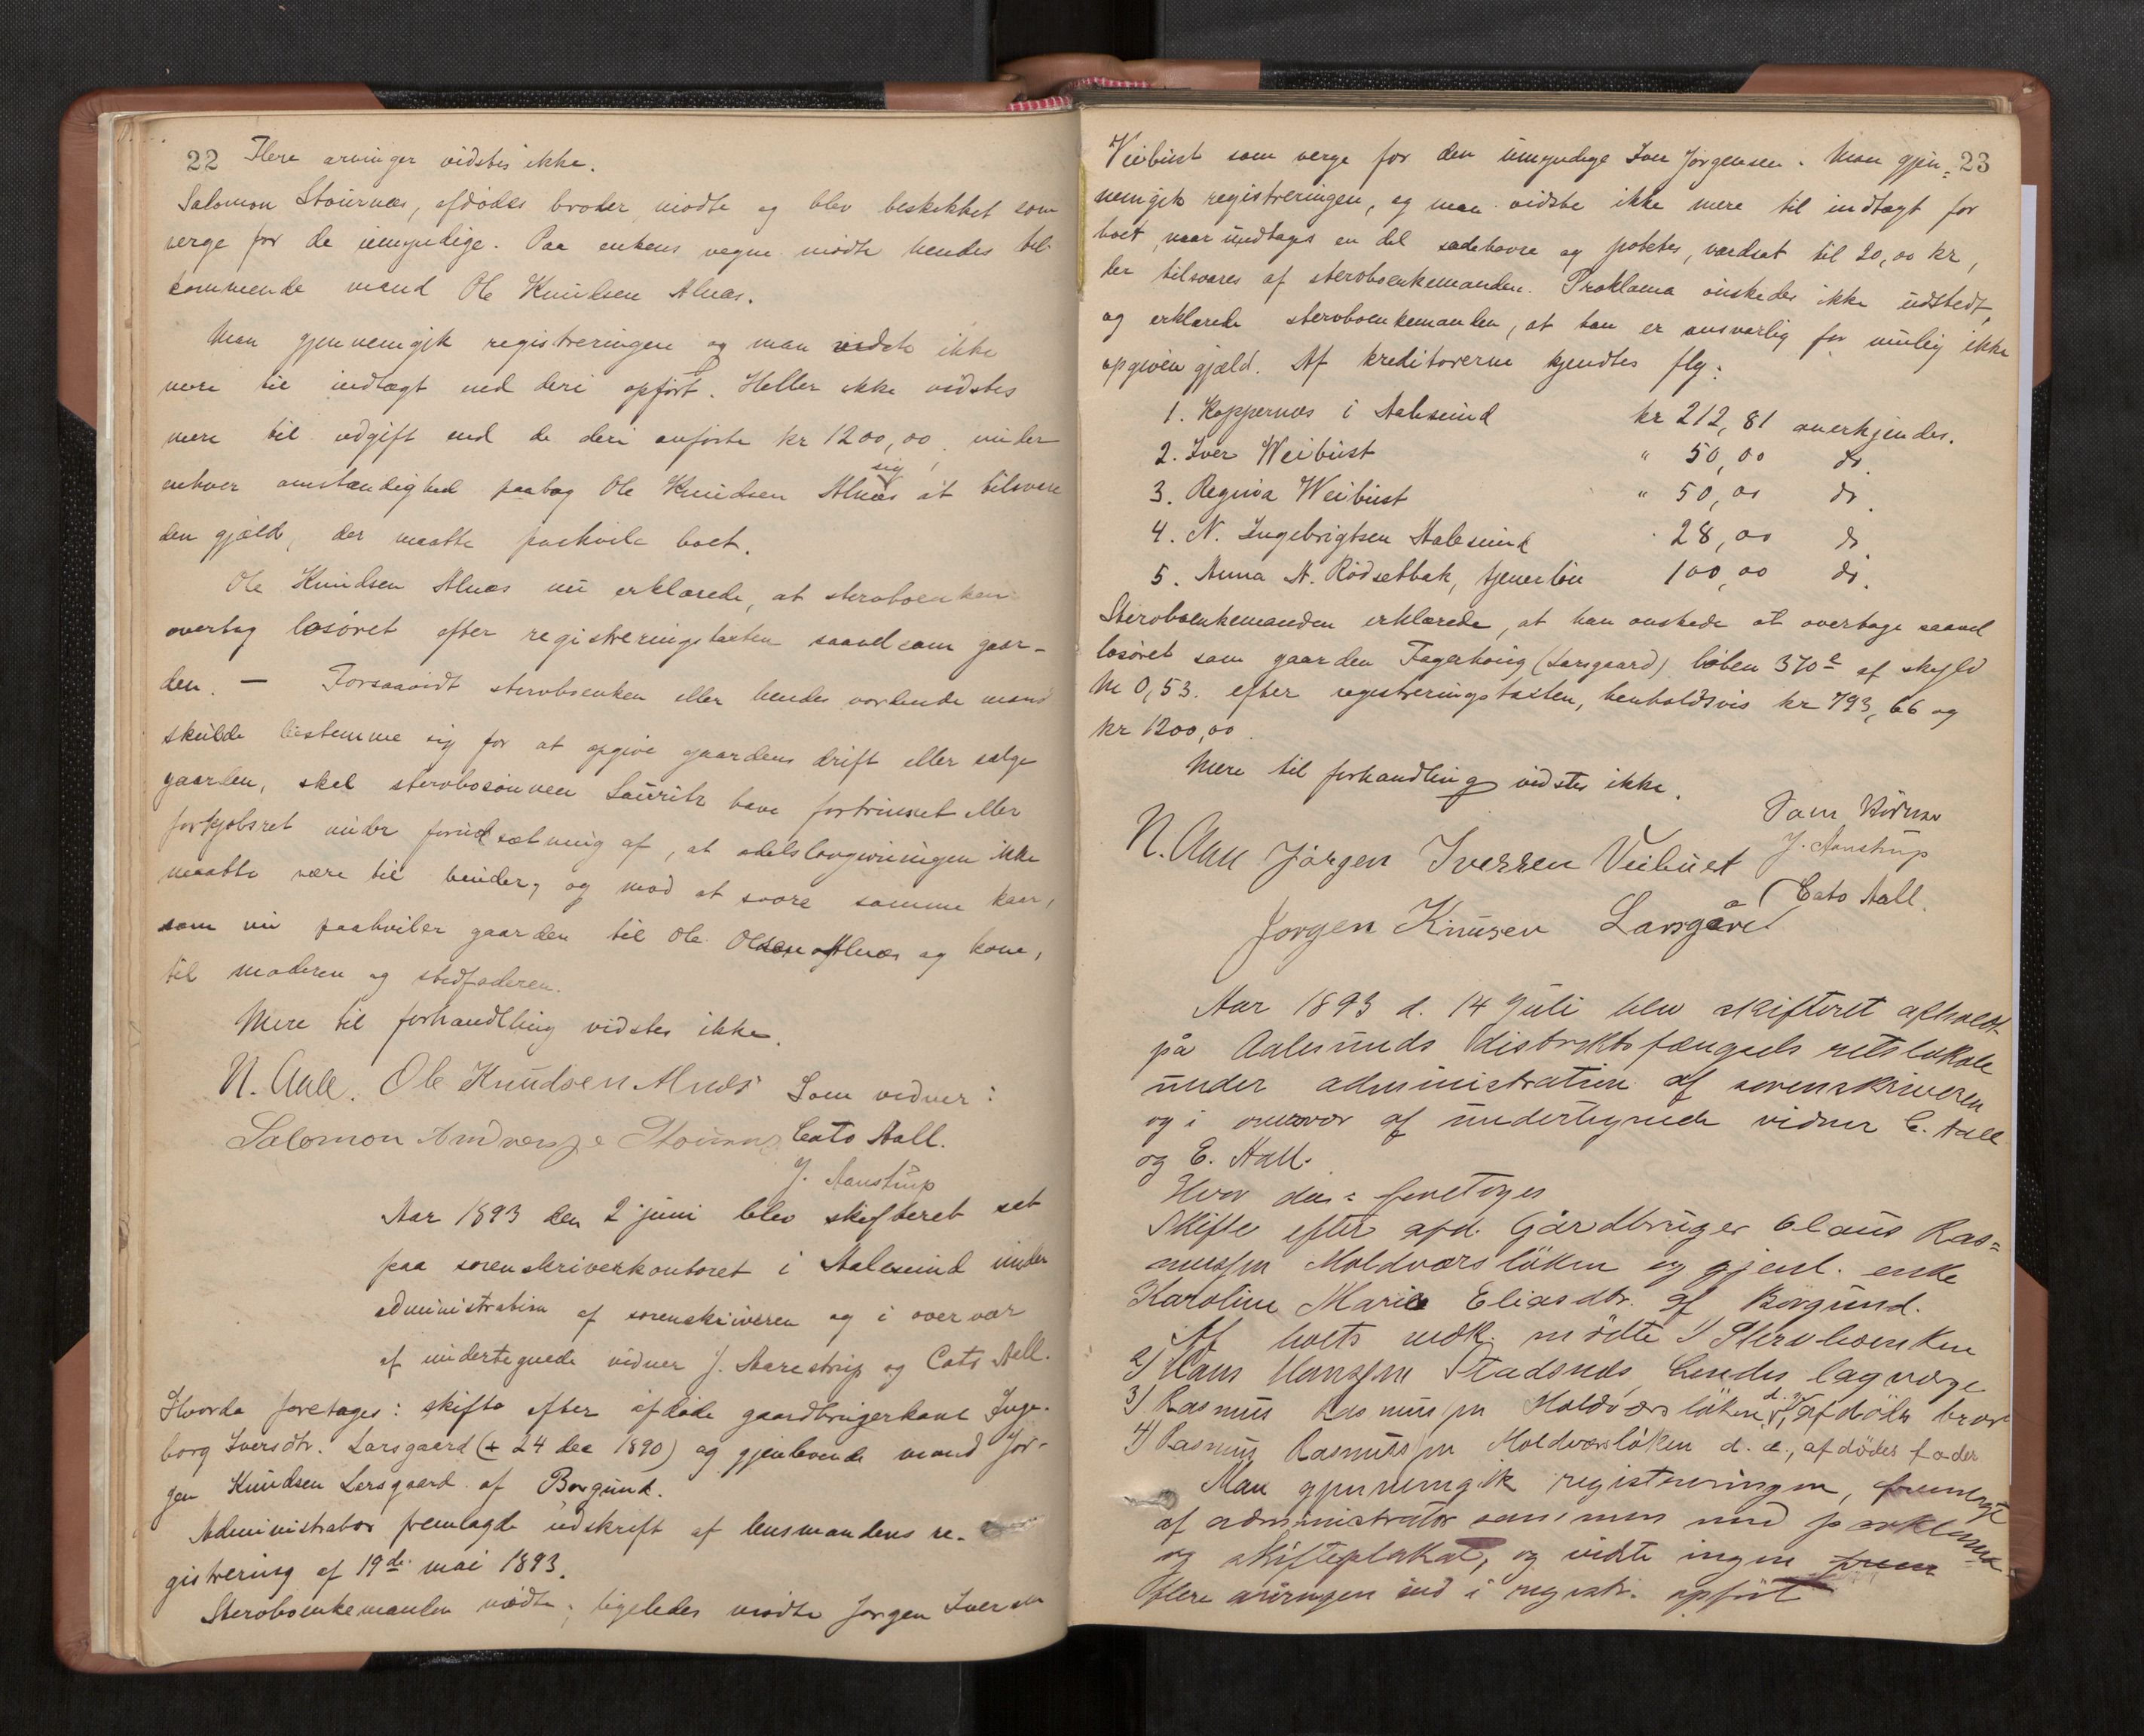 22 Flere arvinger vidstes ikke.
Salomon Stóurnes, afdødes broder mødte og blev beskikket som
verge for de umyndige. Paa enkens vegne mødte hendes til-
kommende mand Ole Knudsen Alnæs.
Man gjennemgik registreringen og man vidste ikke
mere til indtægt end deri opført. Heller ikke vidstes
mere til udgift end de deri anførte kr 1200,00. under
enhver omstændighed paatog Ole Knudsen Alnæs sig at tilsvare
den gjæld, der maatte paahvile boet.
Ole Knudsen Alnæs nu erklærede, at stervboenken
overtog løsøret efter registreringstaxten saavelsom gaar-
den. — Forsaavidt stervboenken eller hendes vordende mand
skulde bestemme sig for at opgive gaardens drift eller sælge
gaarden, skal stervbosønnen Lauritz have fortrinnet eller
forkjøbsret under forudsætning af, at odelslovgivningen ikke
maatte være til hinder, og mod at svare samme kaar,
som nu paahviler gaarden til Ole Olsen Alnæs og kone,
til moderen og stedfaderen.
Mere til forhandling vidstes ikke.
N. Aall. Ole Knudsen Alnæs Som vidner:
Salomon Cato Aall.
J. Aanstrup
Aar 1893 den 2 juni blev skifteret sat
paa sorenskriverkontoret i Aalesund under
administration af sorenskriveren og i overvær
af undertegnede vidner J. og Cato Aall.
Hvorda foretages: skifte efter afdøde gaardbrugerkone Inge-
borg Iversdtr. Larsgaard (+ 24 dec 1890) og gjenlevende mand Jør-
gen Knudsen Larsgaard af Borgund.
Administrator fremlagde udskrift af lensmandens re-
gistrering af 19de mai 1893.
Stervboenkemanden mødte, ligeledes mødte Jørgen Iversen
Veibust som verge for den umyndige Iver Jørgensen. Man gjen- 23
nemgik registreringen, og man vidste ikke mere til indtægt for
boet, naar undtages en del sædehavre og poteter, værdsat til 20,00 kr,
der tilsvares af stervboenkemanden. Proklama ønskedes ikke udstedt,
og erklærede stervboenkemanden, at han er ansvarlig for mulig ikke
opgiven gjæld. Af kreditorerne kjendtes flg:
1. Koppernæs i Aalesund kr 212,81 anerkjendes.
2. Iver Weibust " 50,00 do.
3. Regina Weibust " 50,00 do.
4. N. Ingebrigtsen Aalesund 28,00 do
5. Anna A. Rødsetbak, tjenerløn 100,00 do.
Stervboenkemanden erklærede, at han ønskede at overtage saavel
løsøret som gaarden Fagerhoug (Larsgaard) løben 370e af skyld
M 0,53. efter registreringstaxten, henholdsvis kr 793,66 og
kr 1200,00.
Mere til forhandling vidstes ikke.
Som Vidner
N. Aall Jørgen Iversen Veibust J. Aanstrup
Cato Aall.
Jørgen Knusen Larsgård
Aar 1893 d. 14 Juli blev skifteret afholdt
på Aalesunds distriktsfængsels retslokale
under administration af sorenskriveren
og i overvær af undertegnede vidner C. Aall
og E. Aall.
Hvor da: foretoges
Skifte efter afd. Gårdbruger Claus Ras=
mussen Moldværsløken og gjenl. enke
Karoline Marie Eliasdtr. af Borgund.
Af boets vedk. mødte 1/ Stervboenken
2/ Hans Hanssen Stadsnæs hendes lagværge
3/ Rasmus Rasmussen Moldværsløken d. y., afdødes bror
4/ Rasmus Rasmussen Moldværsløken d. e., afdødes fader
Man gjennemgik registreringen, fremlagt
af administrator sammen med proklama
og skifteplakat, og vidste ingen
flere arvinger end i registr. opført